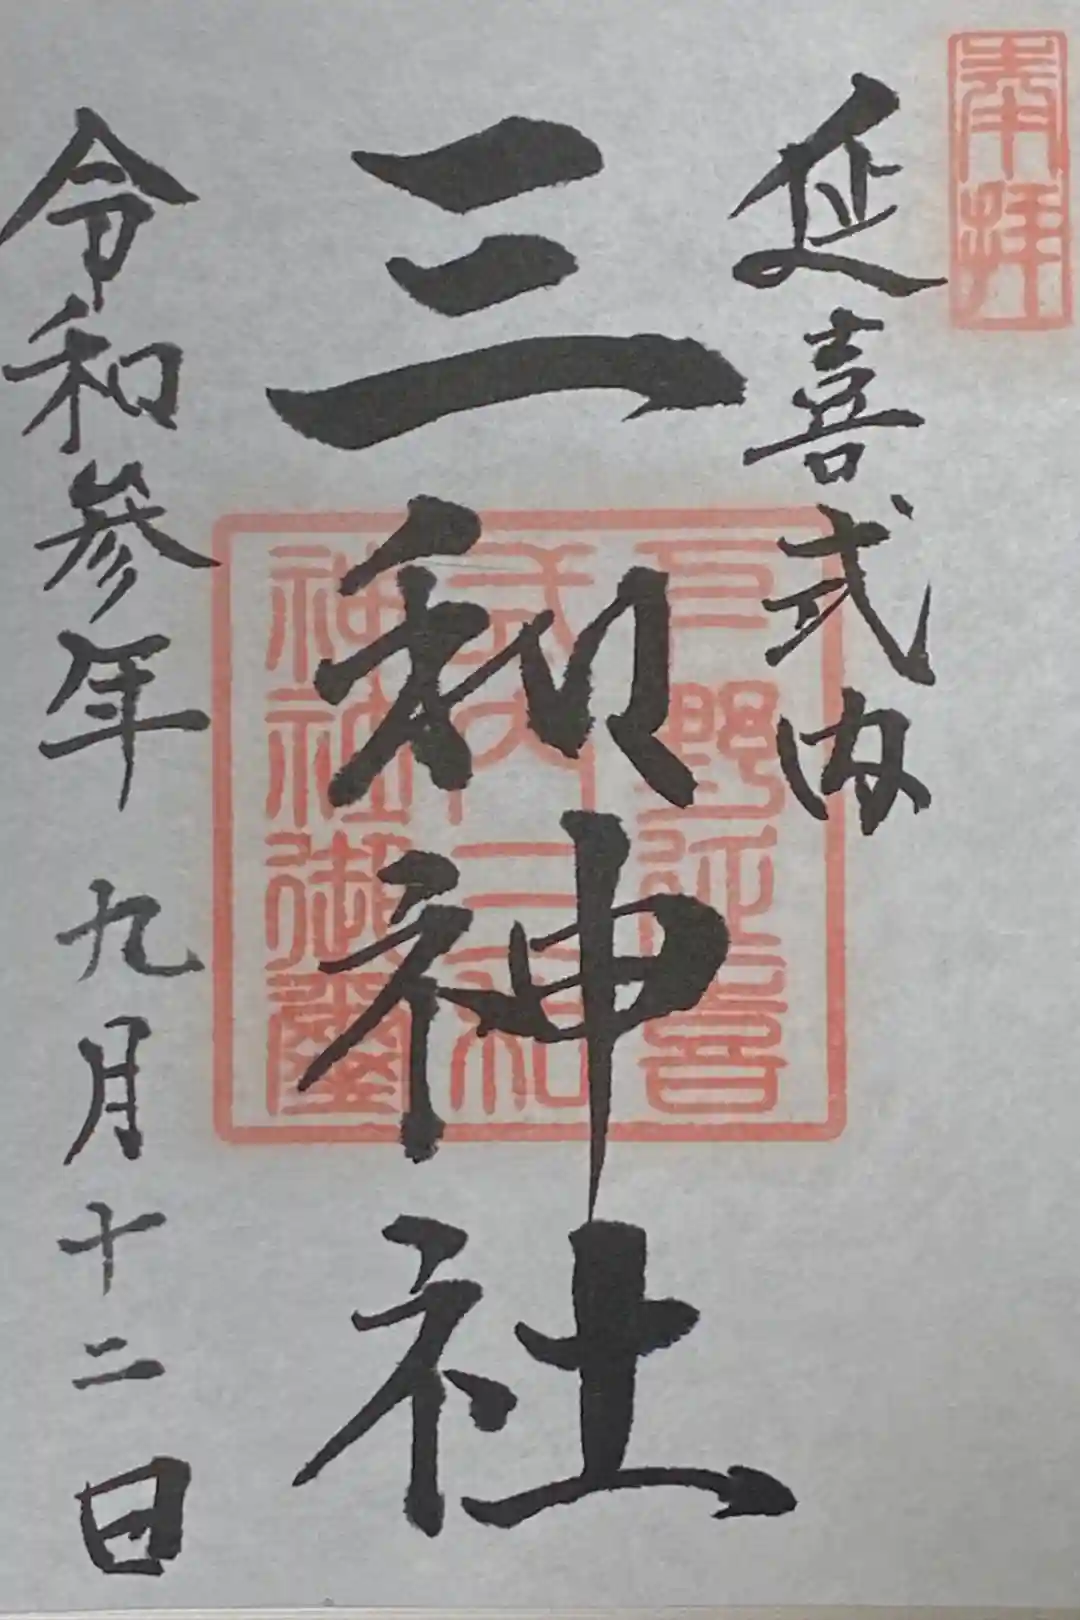 奉拝
延喜式内
三和神社
下野延喜
式内三和
神社御璽
令和参年九月十二日